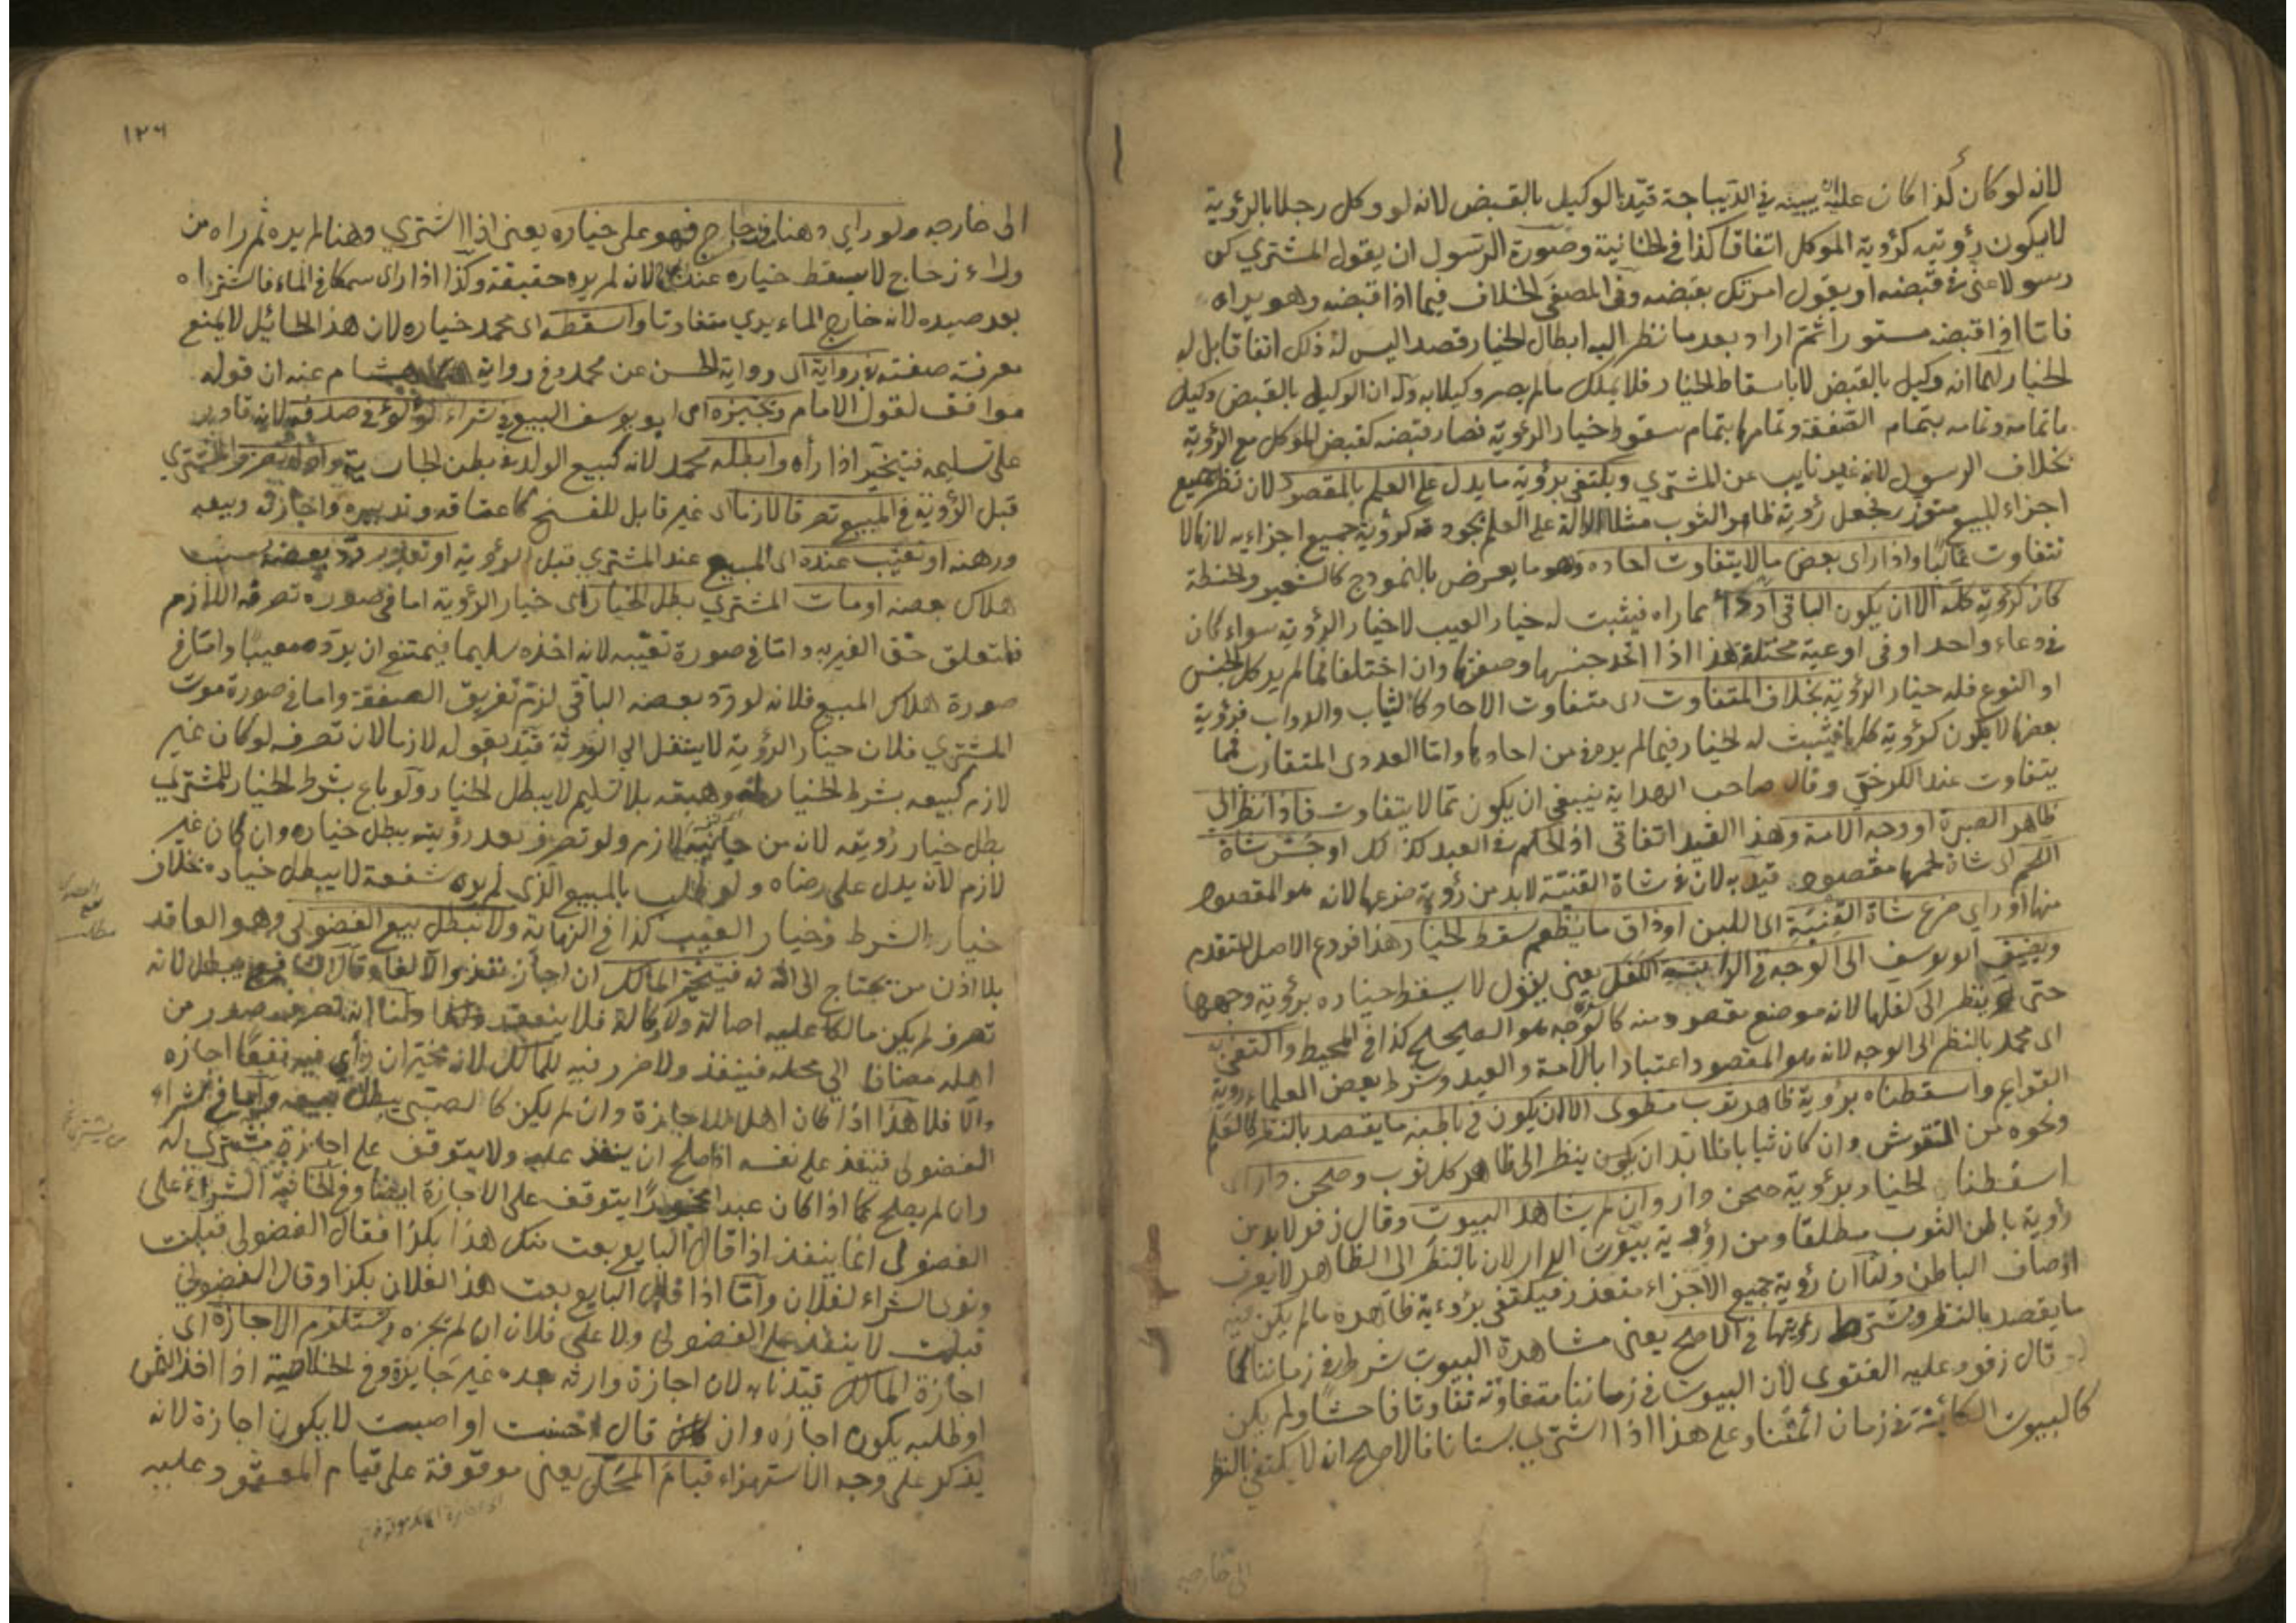 لانه لو كان كذا كان عليه ان يبينه في الديباجة قيد بالوكيل بالقبض لانه لو وكل رجلا بالرؤية
لا يكون رؤيته كرؤية الموكل اتفاقا كذا في الخانية وصورة الرسول ان يقول المشتري كن
رسولا عني في قبضه او يقول امرتك بقبضه وفي المصفى الخلاف فيما اذا قبضه وهو يراه
فاما اذا قبضه مستورا ثم اراد بعد ما نظر اليه ابطال الخيار قصدا ليس له ذلك اتفاقا بل له
الخيار لهما انه وكيل بالقبض لا باسقاط الخيار فلا يملك ما لم يصر وكيلا به وله ان الوكيل بالقبض وكيل
باتمامه وتمامه بتمام الصفقة وتمامها بتمام سقوط خيار الرؤية فصار قبضه كقبض الموكل مع الرؤية
بخلاف الرسول لانه غير نايب عن المشتري ويكتفى برؤية ما يدل على العلم بالمقصود لان نظر جميع
اجزاء المبيع متعذر فجعل رؤية ظاهر الثوب مثلا الدالة على العلم بجودته كرؤية جميع اجزاءيه لانها لا
تتفاوت غالبا واذا راى بعض ما لا يتفاوت احاده وهو ما يعرض بالنموذج كالشعير والحنطة
كان كرؤية كله الا ان يكون الباقي اردأ مما راه فيثبت له خيار العيب لا خيار الرؤية سواء كان
في وعاء واحد او في اوعية مختلفة هذا اذا اتحد جنسها وصفتها وان اختلفا فما لم ير كل الجنس
او النوع فله خيار الرؤية بخلاف المتفاوت اى متفاوت الاحاد كالثياب والدواب فرؤية
بعضها لا يكون كرؤية كلها فيثبت له الخيار فيما لم يره من احادها واما العددى المتقارب فمما
يتفاوت عند الكرخي وقال صاحب الهداية ينبغي ان يكون مما لا يتفاوت فاذا نظر الى
ظاهر الصبرة او وجه الامة وهذا القيد اتفاقي اذ الحكم في العبد كذلك او جس شاة
اللحم اى شاة لحمها مقصود قيد به لان في شاة القنية لا بد من رؤية ضرعها لانه هو المقصود
منها او راي ضرع شاة القنية اى اللبن او ذاق ما يطعم سقط الخيار هذا فروع الاصل المتقدم
ويضيف ابو يوسف الى الوجه في الدابة الكفل يعني يقول لا يسقط خياره برؤية وجهها
حتى ينظر الى كفلها لانه موضع مقصود منه كالوجه هو الصحيح كذا في المحيط واكتفى
اى محمد بالنظر الى الوجه لانه هو المقصود اعتبارا بالامة والعبد وشرط بعض العلماء رؤية
القوايم واسقطناه برؤية ظاهر ثوب مطوى الا ان يكون في باطنه ما يقصد بالنظر كالعلم
ونحوه من النقوش وان كان ثيابا فلا بد ان يكون ينظر الى ظاهر كل ثوب وصحن دار اى
اسقطنا الخيار برؤية صحن دار وان لم يشاهد البيوت وقال زفر لا بد من
رؤية باطن الثوب مطلقا ومن رؤية بيوت الدار لان بالنظر الى الظاهر لا يعرف
اوصاف الباطن ولنا ان رؤية جميع الاجزاء متعذر فيكتفى برؤية ظاهره ما لم يكن فيه
ما يقصد بالنظر ويشترط رؤيتها في الاصح يعني مشاهدة البيوت شرط في زماننا كما
قال زفر وعليه الفتوى لان البيوت في زماننا متفاوته تفاوتا فاحشا ولم يكن
كالبيوت الكائنة في زمان ائمتنا وعلى هذا اذا اشترى بستانا فالاصح انه لا يكتفى بالنظر
الى خارجه
١٢٦
الى خارجه ولو راي دهنا في زجاج فهو على خياره يعني اذا اشتري دهنا لم يره ثم راه من
وراء زجاج لا يسقط خياره عند لانه لم يره حقيقة وكذا اذا راى سمكا في الماء فاشتراه
بعد صيده لانه خارج الماء يرى متفاوتا واسقطه اى محمد خياره لان هذا الحائل لا يمنع
معرفة صفته في رواية اى رواية الحسن عن محمد وفي رواية هشام عنه ان قوله
موافق لقول الامام ويجيزه اى ابو يوسف البيع في شراء لؤلؤ في صدف لانه قادر
على تسليمه فيتخير اذا رأه وابطله محمد لانه كبيع الولد في بطن الجارية واذا تصرف المشتري
قبل الرؤية في المبيع تصرفا لازما اى غير قابل للفسخ كاعتاقه وتدبيره واجازته وبيعه
ورهنه او تعيب عنده اى المبيع عند المشتري قبل الرؤية او تعذر رد بعضه بسبب
هلاك بعضه او مات المشتري بطل الخيار اى خيار الرؤية اما في صورة تصرفه اللازم
فلتعلق حق الغير به واما في صورة تعيبه لانه اخذه سليما فيمتنع ان يرد معيبا واما في
صورة هلاك المبيع فلانه لو رد بعضه الباقي لزم تفريق الصفقة واما في صورة موت
المشتري فلان خيار الرؤية لا ينتقل الي الورثة قيد بقوله لازما لان تصرفه لو كان غير
لازم كبيعه بشرط الخيار له وهبته بلا تسليم لا يبطل الخيار ولو باع بشرط الخيار للمشتري
بطل خيار رؤيته لانه من جانبه لازم ولو تصرف بعد رؤيته يبطل خياره وان كان غير
لازم لانه يدل على رضاه ولو طلب بالمبيع الذي لم يره شفعة لا يبطل خياره بخلاف
خيار الشرط وخيار العيب كذا في النهاية ولا نبطل بيع الفضولى وهو العاقد
بلا اذن من يحتاج الى اذنه فيتخير المالك ان اجاز نفذ والا لغا وقال الشافعي يبطل لانه
تصرف لم يكن مالكا عليه اصالة ولا وكالة فلا ينعقد ولنا انه تصرف صدر من
اهله مضافا الي محله فينفذ ولا ضرر فيه للمالك لانه مخير ان رأى فيه نفعا اجازه
والا فلا هذا اذا كان اهلا للاجازة وان لم يكن كالصبي يبطل بيعه واما في شراء
الفضولى فينفذ على نفسه اذا صلح ان ينفذ عليه ولا يتوقف على اجازة مشترى له
وان لم يصلح كما اذا كان عبدا محجورا يتوقف على الاجازة ايضا وفي الخانية الشراء على
الفضولى انما ينفذ اذا قال البايع بعت منك هذا بكذا فقال الفضولى قبلت
ونوى الشراء لفلان واما اذا قال البايع بعت هذا لفلان بكذا وقال الفضولى
قبلت لا ينفذ على الفضولى ولا على فلان ان لم يجزه ويستلزم الاجازة اى
اجازة المالك قيدنا به لان اجازة وارثه بعده غير جايزة وفي الخلاصة اذا اخذ الثمن
او طلبه يكون اجازه وان قال احسنت او اصبت لا يكون اجازة لانه
يذكر على وجه الاستهزاء قيام المحل يعني موقوفة على قيام المعقود عليه